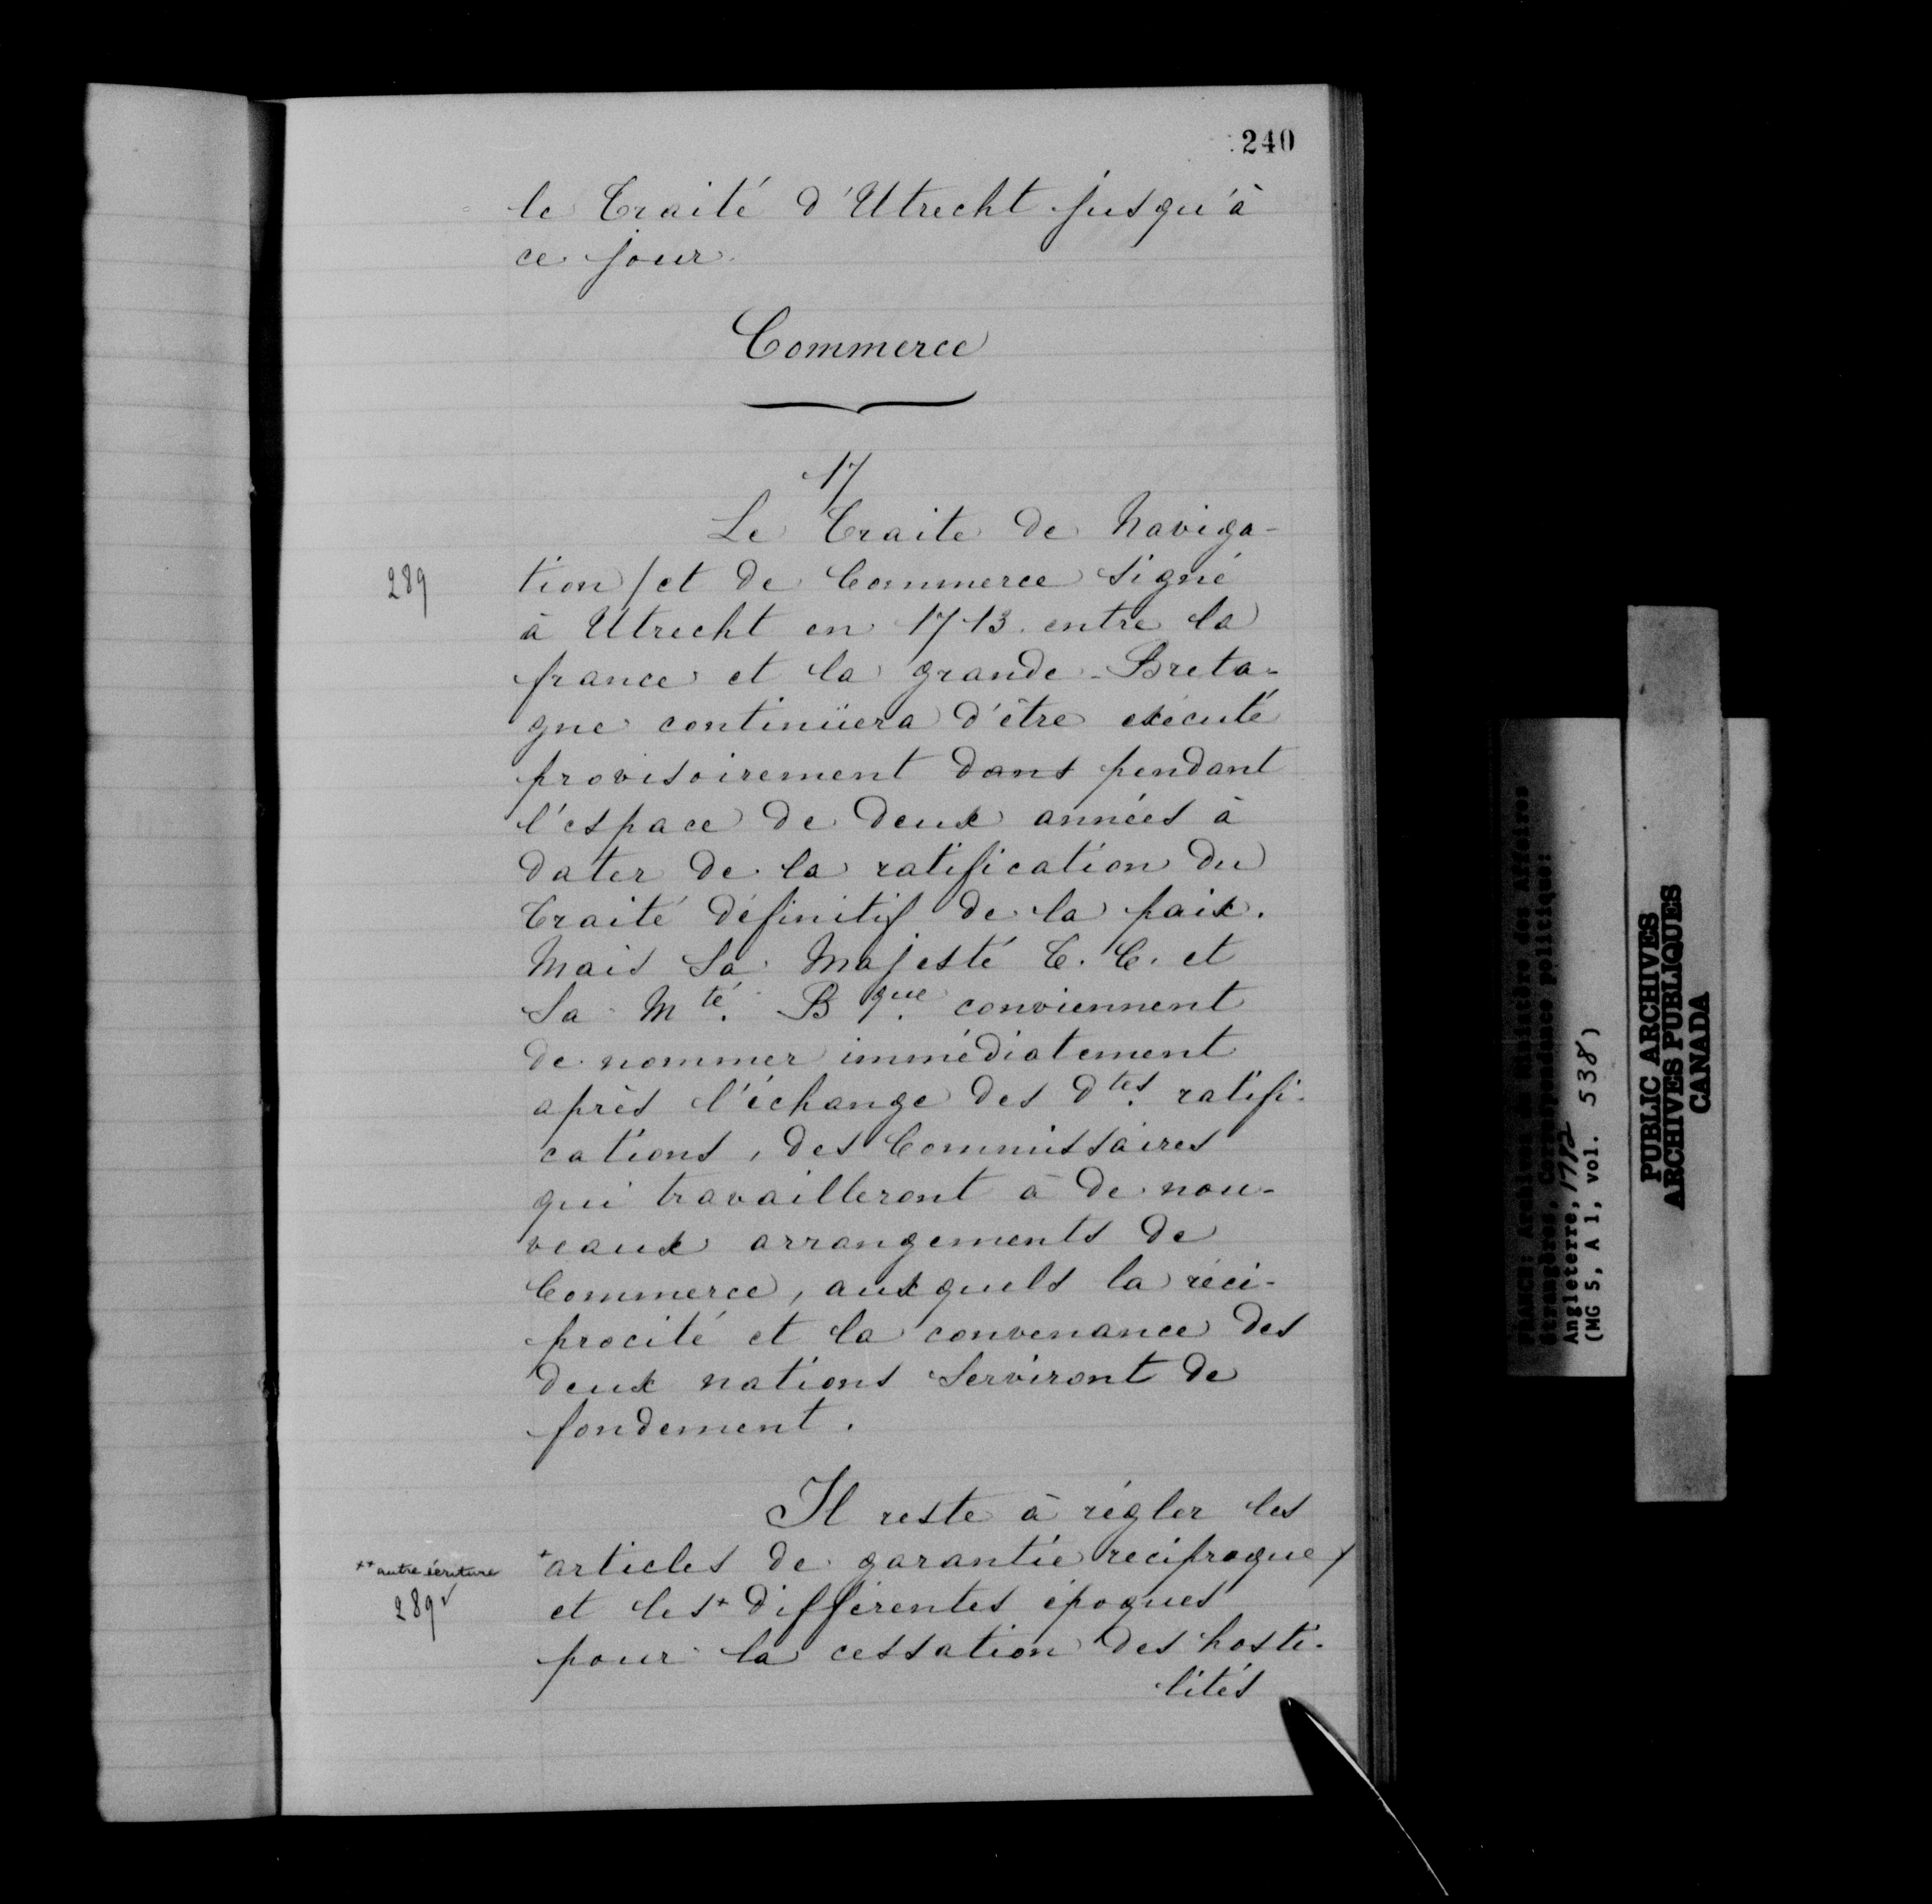 240
le Traité d'Utrecht jusqu'à
ce jour.
Commerce
17
Le Traite de Naviga-
289
tion / et de Commerce signé
à Utrecht en 1713. entre la
france et la grande-Breta-
gne continüera d'être exécuté
provisoirement dans pendant
l'espace de deux années à
dater de la ratification du
Traité définitif de la paix.
Mais Sa Majesté T. C. et
Sa Mté. Bque. conviennent
de nommer immédiatement
après l'échange des dtes. ratifi-
cations, des Commissaires
qui travailleront à de nou-
veaux arrangements de
Commerce, auxquels la réci-
procité et la convenance des
deux nations serviront de
fondement.
Il reste à régler les
++ autre écriture
+articles de garantie reciproque /
289v
et les+ différentes époques
pour la cessation des hosti-
lités
FRANCE: Archives du Ministère des Affaires
étrangères, Correspondance politique:
Angleterre, 1782
(MG 5, A 1, vol. 538)
PUBLIC ARCHIVES
ARCHIVES PUBLIQUES
CANADA